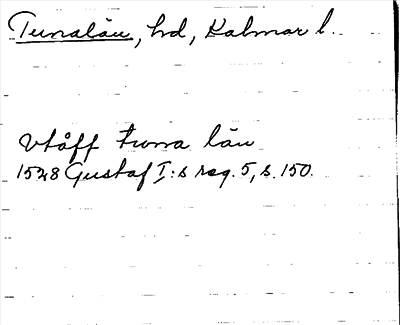 Tunalän, hd, Kalmar l.
vtåff tuna län
1528 Gustaf I:s reg. 5, s. 150.